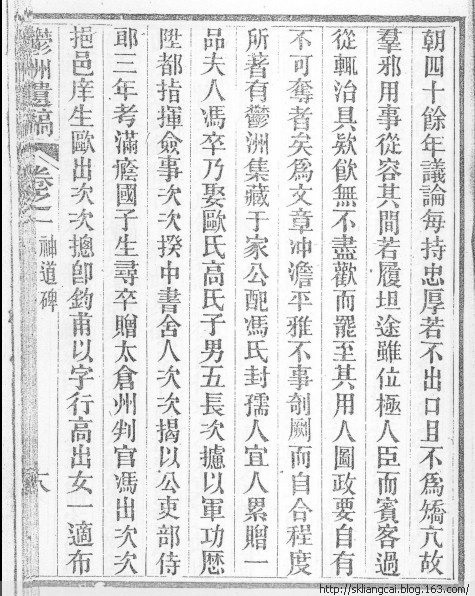 朝四十餘年議論每持忠厚若不出口且不爲矯亢故
羣邪用事從容其間若履坦途雖位極人臣而賓客過
從輒治具欵飮無不盡歡而罷至其用人圖政要自有
不可奪者矣爲文章冲澹平雅不事剞劂而自合程度
所著有鬱洲集藏于家公配馮氏封孺人宜人累贈一
品夫人馮卒乃娶歐氏高氏子男五長次攄以軍功歷
陞都指揮僉事次次揆中書舍人次次揭以公吏部侍
郎三年考滿廕國子生尋卒贈太倉州判官馮出次次
挹邑庠生歐出次次摠卽鈞甫以字行高出女一適布
鬱洲遺稿 卷之一 神道碑 六
http://skliangcai.blog.163.com/